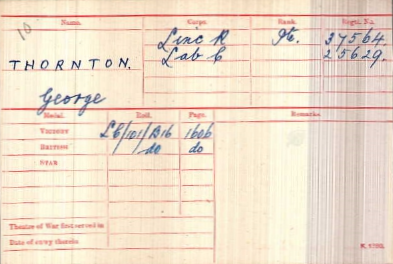 10
Name. Corps. Rank. Regtl. No.
THORNTON. Linc R Pte. 37564.
Lab C 25629.
George
Medal. Roll. Page. Remarks.
VICTORY LC/101/B16 1606
BRITISH do do
STAR
Theatre of War first served in
Date of entry therein